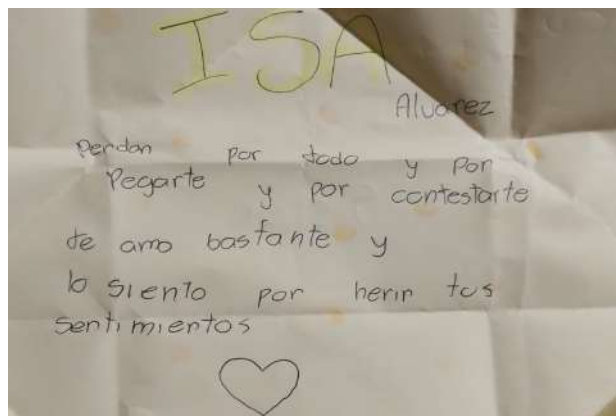 ISA
Alvarez
Perdon por todo y por
Pegarte y por contestarte
te amo bastante y
lo siento por herir tus
sentimientos